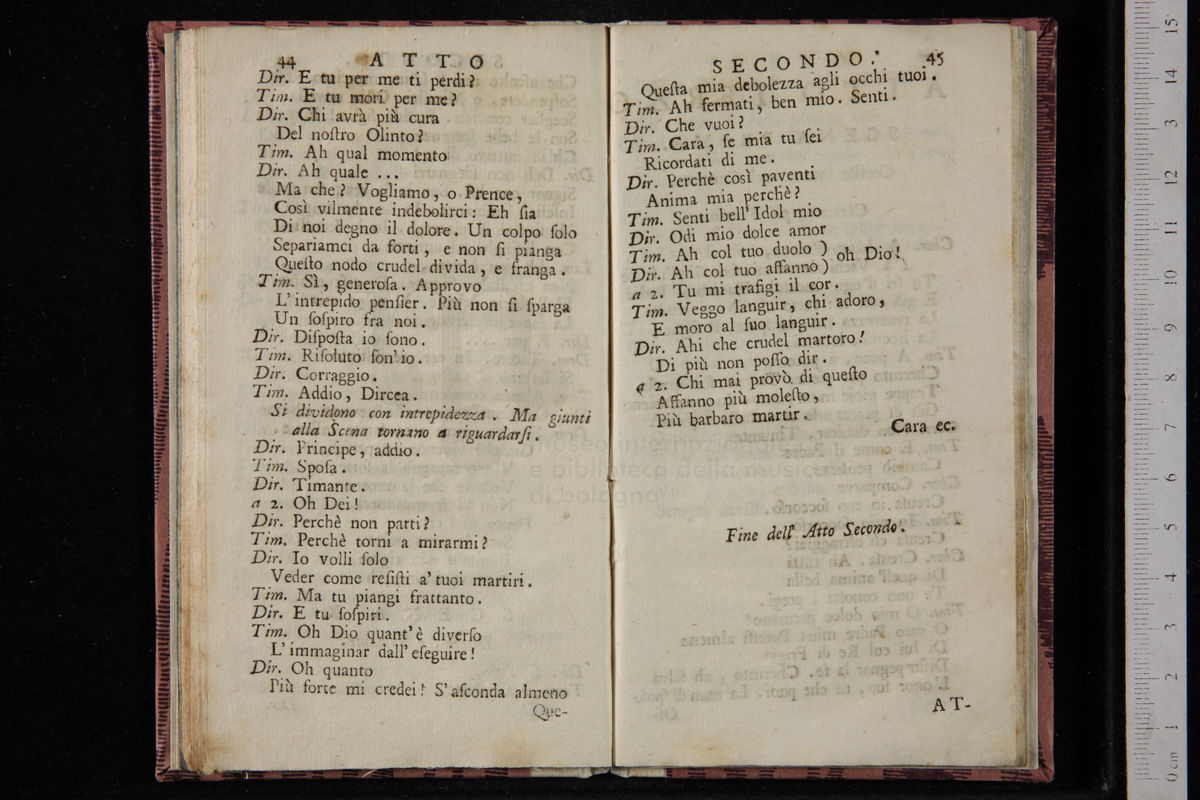 44 ATTO
Dir. E tu per me ti perdi?
Tim. E tu mori per me?
Dir. Chi avrà più cura
Del noſtro Olinto?
Tim. Ah qual momento
Dir. Ah quale ...
Ma che? Vogliamo, o Prence,
Così vilmente indebolirci: Eh ſia
Di noi degno il dolore. Un colpo ſolo
Separiamci da forti, e non ſi pianga
Queſto nodo crudel divida, e franga.
Tim. Sì, generoſa. Approvo
L'intrepido penſier. Più non ſi ſparga
Un ſoſpiro fra noi.
Dir. Diſpoſta io ſono.
Tim. Riſoluto ſon'io.
Dir. Corraggio.
Tim. Addio, Dircea.
Si dividono con intrepidezza. Ma giunti
alla Scena tornano a riguardarſi.
Dir. Principe, addio.
Tim. Spoſa.
Dir. Timante.
a 2. Oh Dei!
Dir. Perchè non parti?
Tim. Perchè torni a mirarmi?
Dir. Io volli ſolo
Veder come reſiſti a' tuoi martiri.
Tim. Ma tu piangi frattanto.
Dir. E tu ſoſpiri.
Tim. Oh Dio quant'è diverſo
L'immaginar dall'eſeguire!
Dir. Oh quanto
Più forte mi credei! S'aſconda almeno
Que-
SECONDO. 45
Queſta mia debolezza agli occhi tuoi.
Tim. Ah fermati, ben mio. Senti.
Dir. Che vuoi?
Tim. Cara, ſe mia tu ſei
Ricordati di me.
Dir. Perchè così paventi
Anima mia perchè?
Tim. Senti bell'Idol mio
Dir. Odi mio dolce amor
Tim. Ah col tuo duolo )
Dir. Ah col tuo affanno ) oh Dio!
a 2. Tu mi trafigi il cor.
Tim. Veggo languir, chi adoro,
E moro al ſuo languir.
Dir. Ahi che crudel martoro!
Di più non poſſo dir.
a 2. Chi mai provò di queſto
Affanno più moleſto,
Più barbaro martir.
Cara ec.
Fine dell' Atto Secondo.
AT-
e biblioteca della musica
di bologna